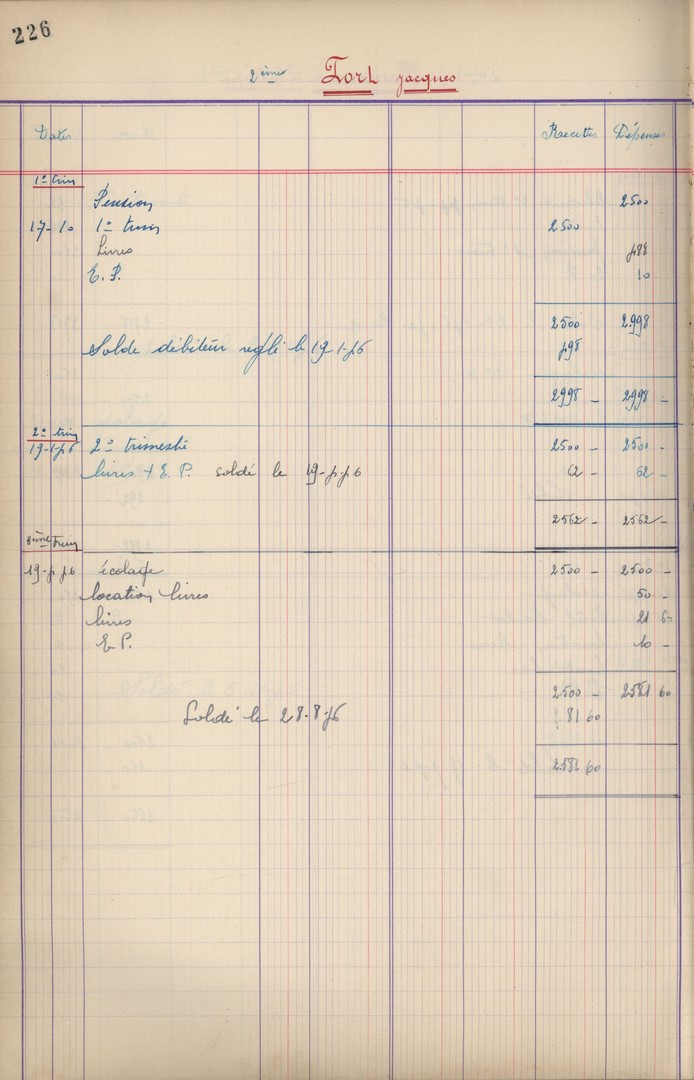 226
2ème Fort Jacques
Dates Recettes Dépenses
1er trim
Pension 2500
17-10 1er trim 2500
Livres 488
E. P. 10
2500 2.998
Solde débiteur réglé le 19-1-46 498
2998 - 2998 -
2e trim
19-1-46 2e trimestre 2500 - 2500 -
livres + E. P. soldé le 19-4-46 62 - 62 -
2562 - 2562 -
3ème trim
19-4-46 écolage 2500 - 2500 -
location livres 50 -
livres 21 60
E P. 10 -
2.500 - 2581 60
Soldé le 28-8-46 81 60
2.581 60